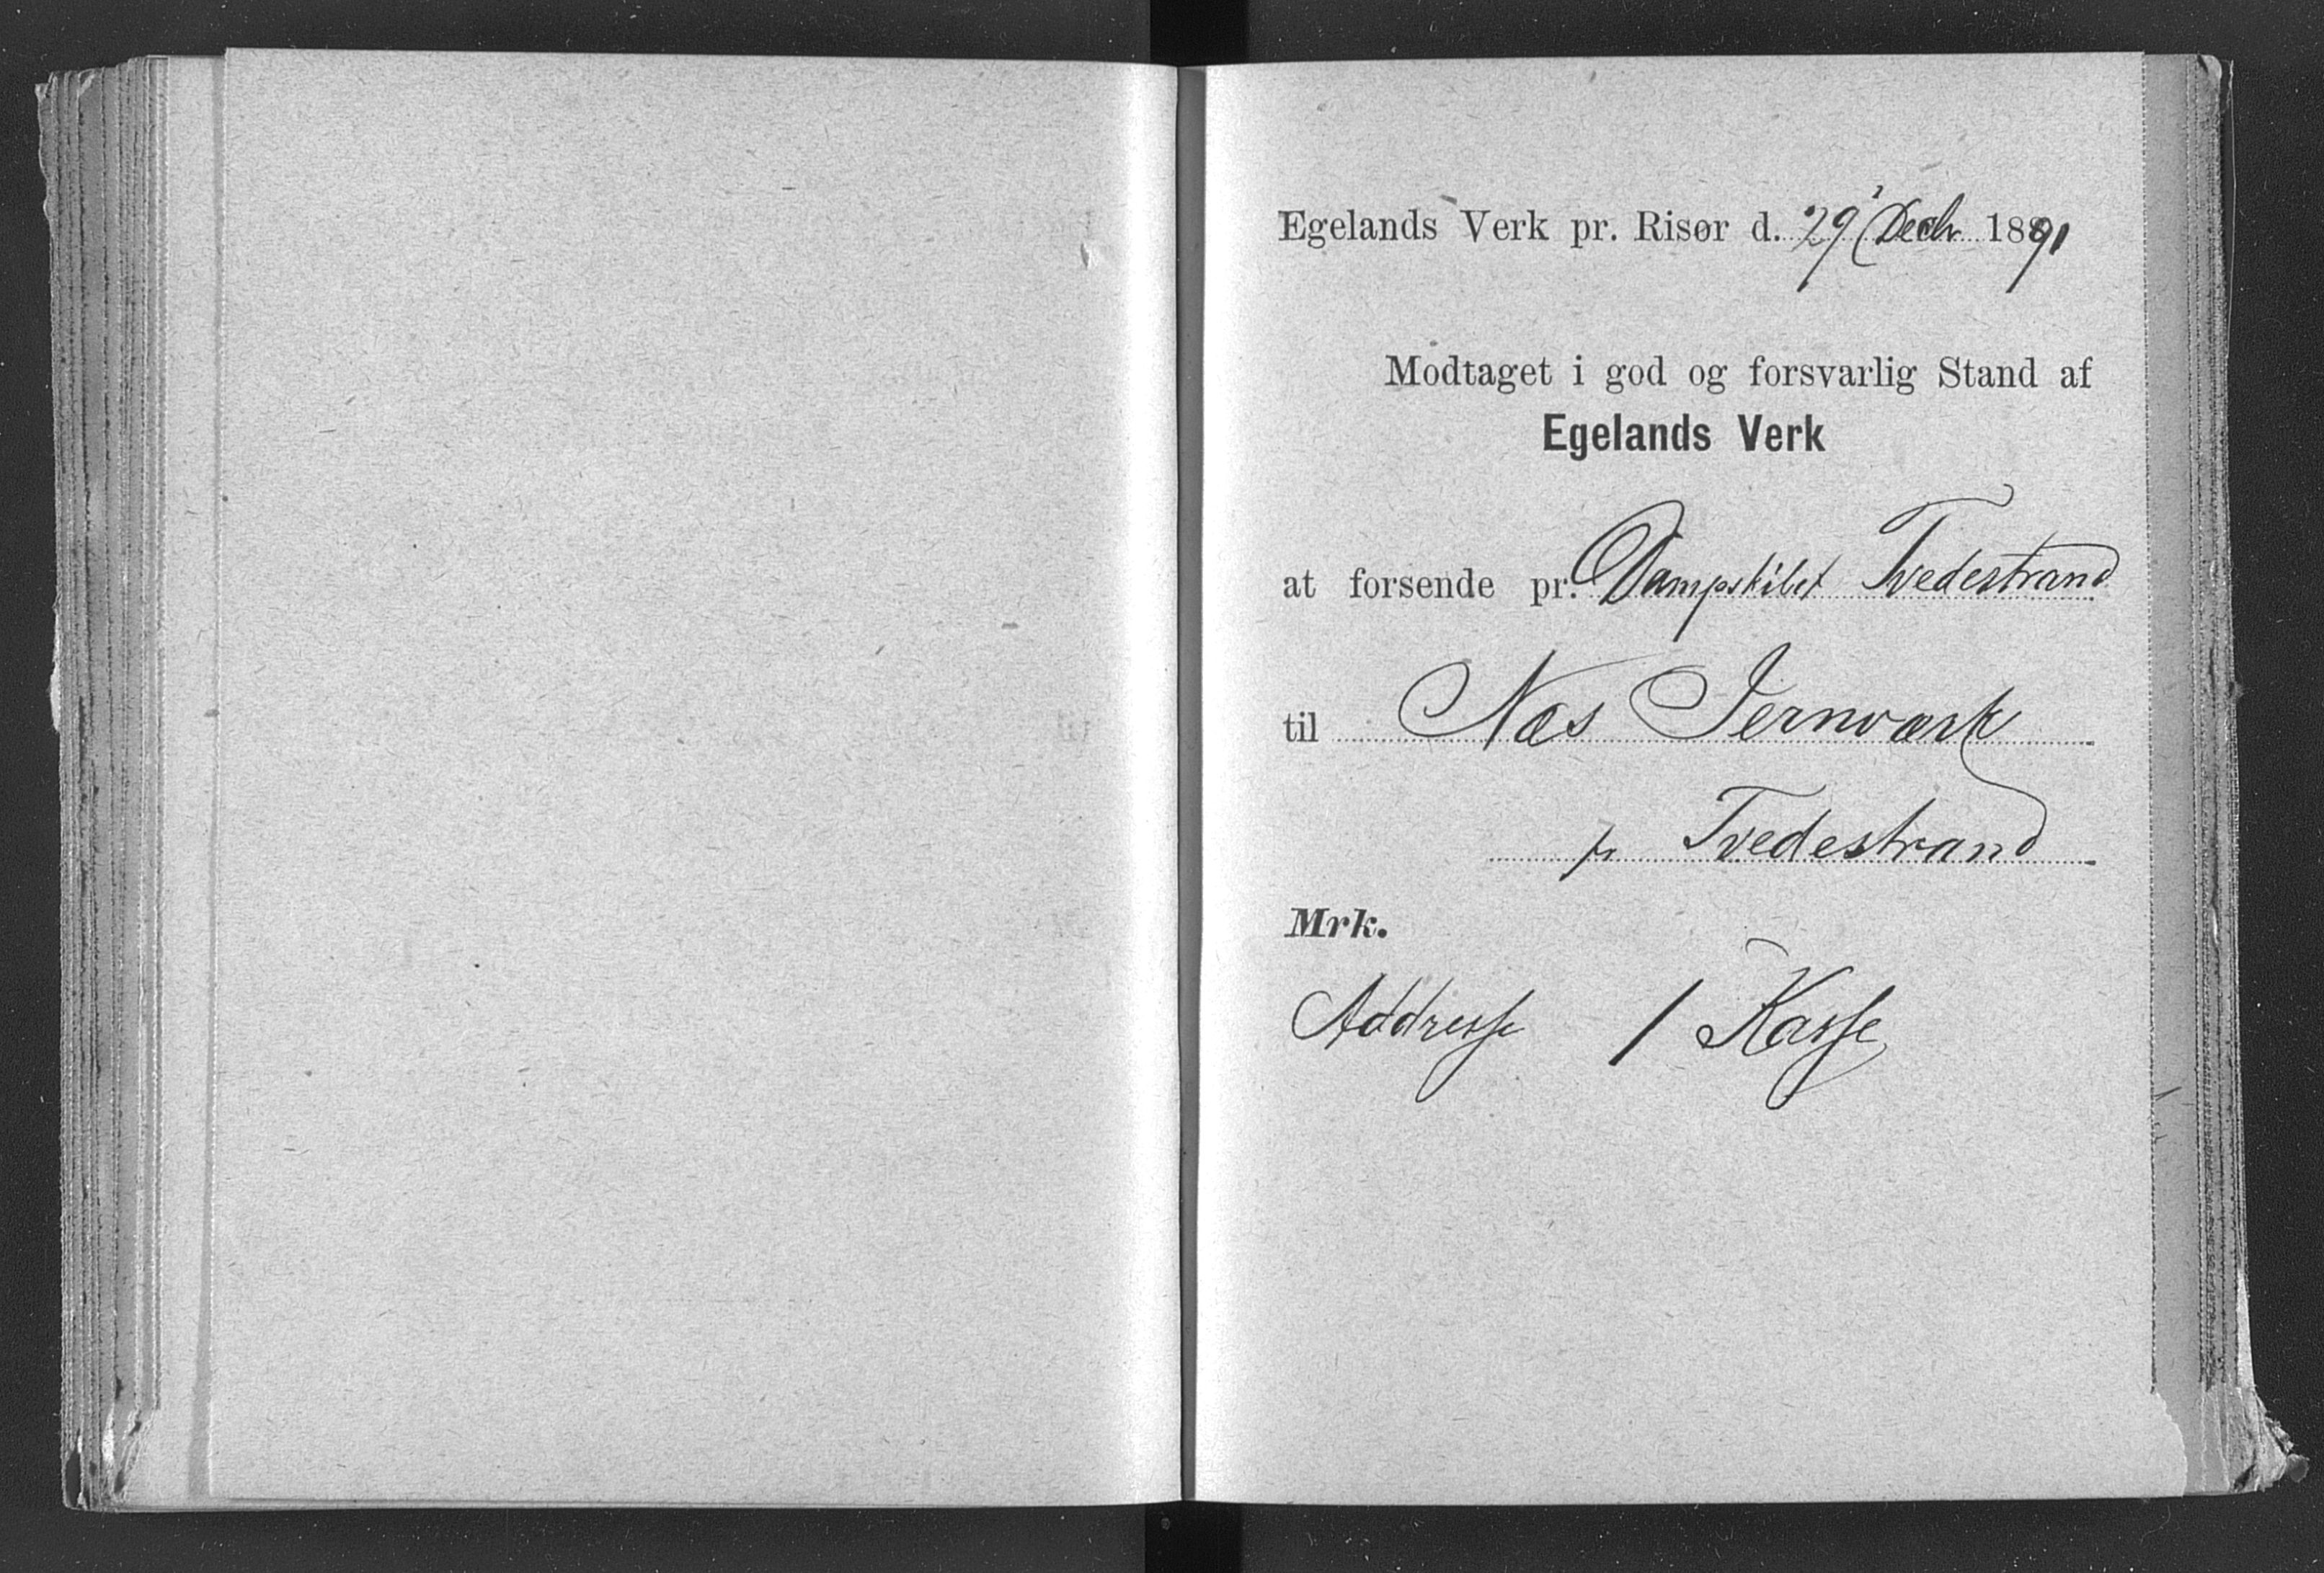 Egelands Verk pr. Risør d. 29 Decbr 1891
Modtaget i god og forsvarlig Stand af
Egelands Verk
at forsende pr. Dampskibet Tvedestrand
til Næs Jernværk
pr Tvedestrand
Mrk.
Addresse 1 Kasse